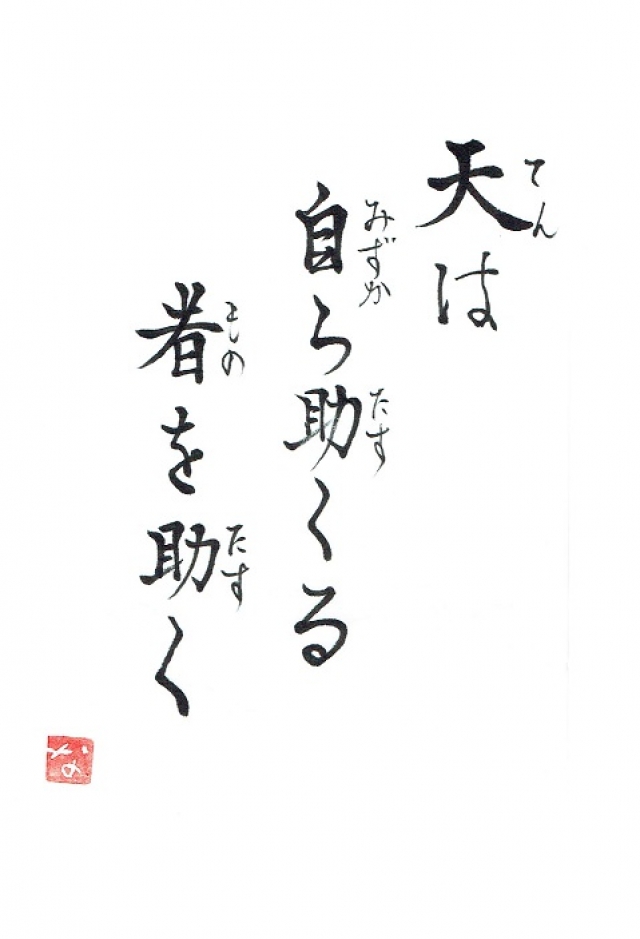 天は
てん
自ら助くる
みずか
たす
者を助く
もの
たす
な